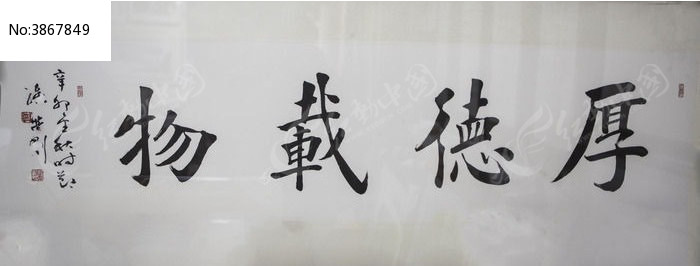 No:3867849
厚德載物
辛卯金秋時節